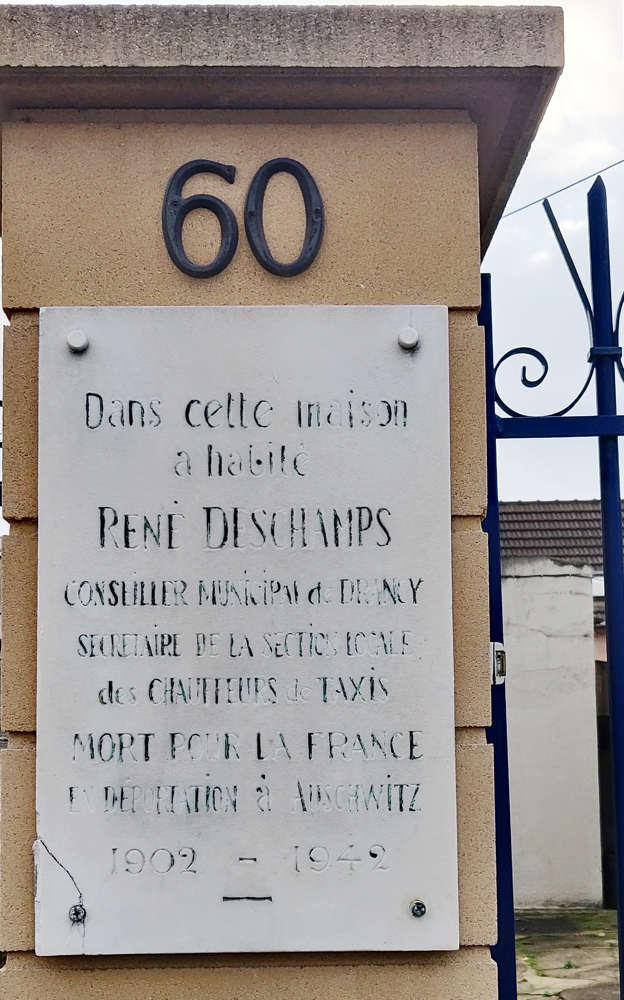 60
Dans cette maison
a habité
RENÉ DESCHAMPS
CONSEILLER MUNICIPAL de DRANCY
SECRETAIRE DE LA SECTION LOCALE
des CHAUFFEURS de TAXIS
MORT POUR LA FRANCE
EN DÉPORTATION à AUSCHWITZ
1902 - 1942